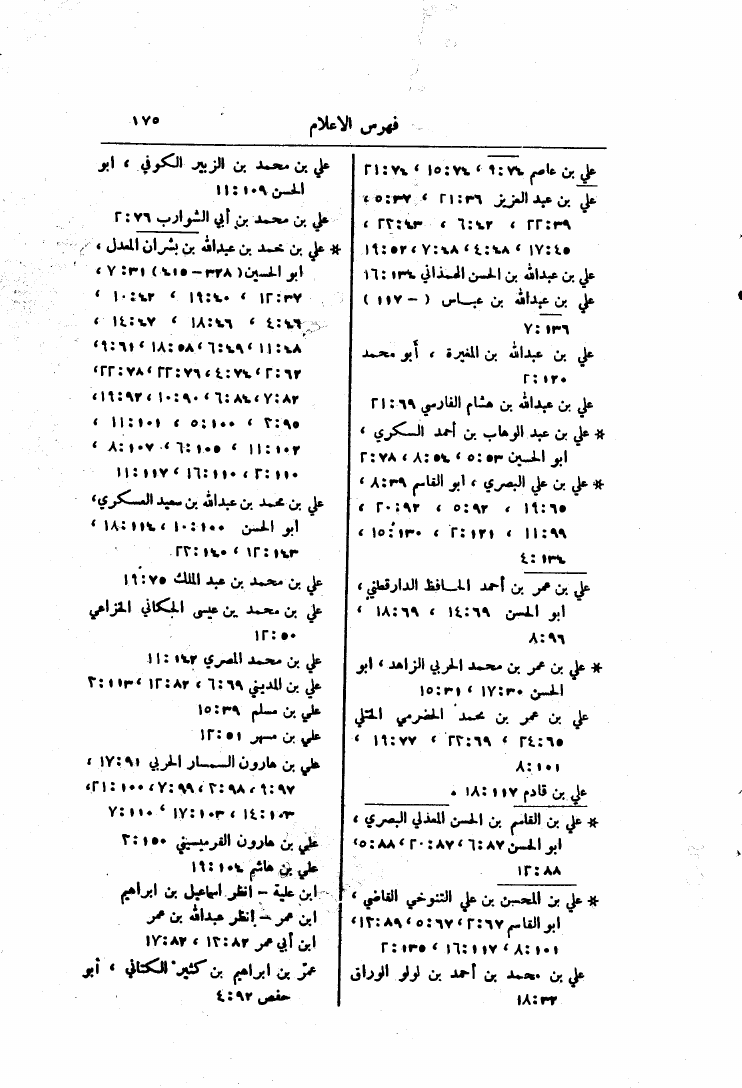 فهرس الاعلام ١٧٥
علي بن عاصم ٩:٧٤ ، ١٥:٧٤ ، ٢١:٧٤
علي بن عبد العزيز ٢١:٣٦ ، ٥:٣٧ ،
٢٢:٣٩ ، ٦:٤٢ ، ٢٢:٤٣ ،
١٧:٤٥ ، ٤:٤٨ ، ٧:٤٨ ، ١٩:٥٢
علي بن عبدالله بن الحسن الهمذاني ١٦:١٣٤
علي بن عبدالله بن عبـاس ( – ١١٧ )
٧:١٣٦
علي بن عبدالله بن المغيرة ، أبو محمد
٢:١٢٠
علي بن عبدالله بن هشام الفارسي ٢١:٦٩
* علي بن عبد الوهاب بن أحمد السكري ،
ابو الحسين ٥:٥٣ ، ٨:٥٤ ، ٢:٧٨
* علي بن علي البصري ، ابو القاسم ٨:٣٩ ،
١٩:٦٥ ، ٥:٩٢ ، ٢٠:٩٢ ،
١١:٩٩ ، ٢:١٢١ ، ١٥:١٣٠ ،
٤:١٣٤
علي بن عمر بن أحمد الحـافظ الدارقطني ،
ابو الحسن ١٤:٦٩ ، ١٨:٦٩ ،
٨:٩٦
* علي بن عمر بن محمد الحربي الزاهد ، ابو
الحسن ١٧:٣٠ ، ١٥:٣١
علي بن عمر بن محمد الحضرمي الختلي
٢٤:٦٥ ، ٢٢:٦٩ ، ١٩:٧٧ ،
٨:١٠١
علي بن قادم ١٨:١١٧ .
* علي بن القاسم بن الحسن المعذلي البصري ،
ابو الحسن ٦:٨٧ ، ٢٠:٨٧ ، ٥:٨٨ ،
١٣:٨٨
* علي بن المحسن بن علي التنوخي القاضي ،
ابو القاسم ٢:٦٧ ، ٥:٦٧ ، ١٣:٨٩ ،
٨:١٠١ ، ١٦:١١٧ ، ٢:١٣٥
علي بن محمد بن أحمد بن لولو الوراق
١٨:٣٢
علي بن محمد بن الزبير الكوفي ، ابو
الحسن ١١:١٠٩
علي بن محمد بن أبي الشوارب ٢:٧٦
* علي بن محمد بن عبدالله بن بشران المعدل ،
ابو الحسين (٣٢٨ – ٤١٥) ٧:٣١ ،
١٢:٣٧ ، ١٩:٤٠ ، ١٠:٤٢ ،
٤:٤٦ ، ١٨:٤٦ ، ١٤:٤٧ ،
١١:٤٨ ، ٦:٤٩ ، ١٨:٥٨ ، ٩:٦١ ،
٢:٦٢ ، ٤:٧٤ ، ٢٢:٧٦ ، ٢٢:٧٨ ،
٧:٨٢ ، ٦:٨٤ ، ١٠:٩٠ ، ١٩:٩٢ ،
٢:٩٥ ، ٥:١٠٠ ، ١١:١٠١ ،
١١:١٠٢ ، ٦:١٠٥ ، ٨:١٠٧ ،
٢:١١٠ ، ١٦:١١٠ ، ١١:١١٧
علي بن محمد بن عبدالله بن سعيد العسكري ،
ابو الحسن ١٠:١٠٠ ، ١٨:١١٤ ،
١٢:١٤٣ ، ٢٢:١٤٥
علي بن محمد بن عبد الملك ١٩:٧٥
علي بن محمد بن عيسى الجكاني الخزاعي
١٢:٥٠
علي بن محمد المصري ١١:١٤٢
علي بن المديني ٦:٦٩ ، ١٢:٨٢ ، ٢:١١٣
علي بن مسلم ١٥:٣٩
علي بن مسهر ١٢:٥١
علي بن هارون السـمسار الحربي ١٧:٩١ ،
٩:٩٧ ، ٢:٩٨ ، ٧:٩٩ ، ٢١:١٠٠ ،
١٤:١٠٣ ، ١٧:١٠٣ ، ٧:١١٠
علي بن هارون القرميسيني ٣:١٥٠
علي بن هاشم ١٩:١٠٤
ابن علية – انظر اسماعيل بن ابراهيم
ابن عمر – انظر عبدالله بن عمر
ابن أبي عمر ١٣:٨٢ ، ١٧:٨٢
عمر بن ابراهيم بن كثير الكتاني ، أبو
حفص ٤:٩٢